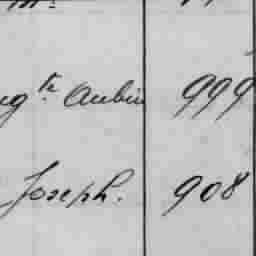 Aubin 999
Joseph. 908